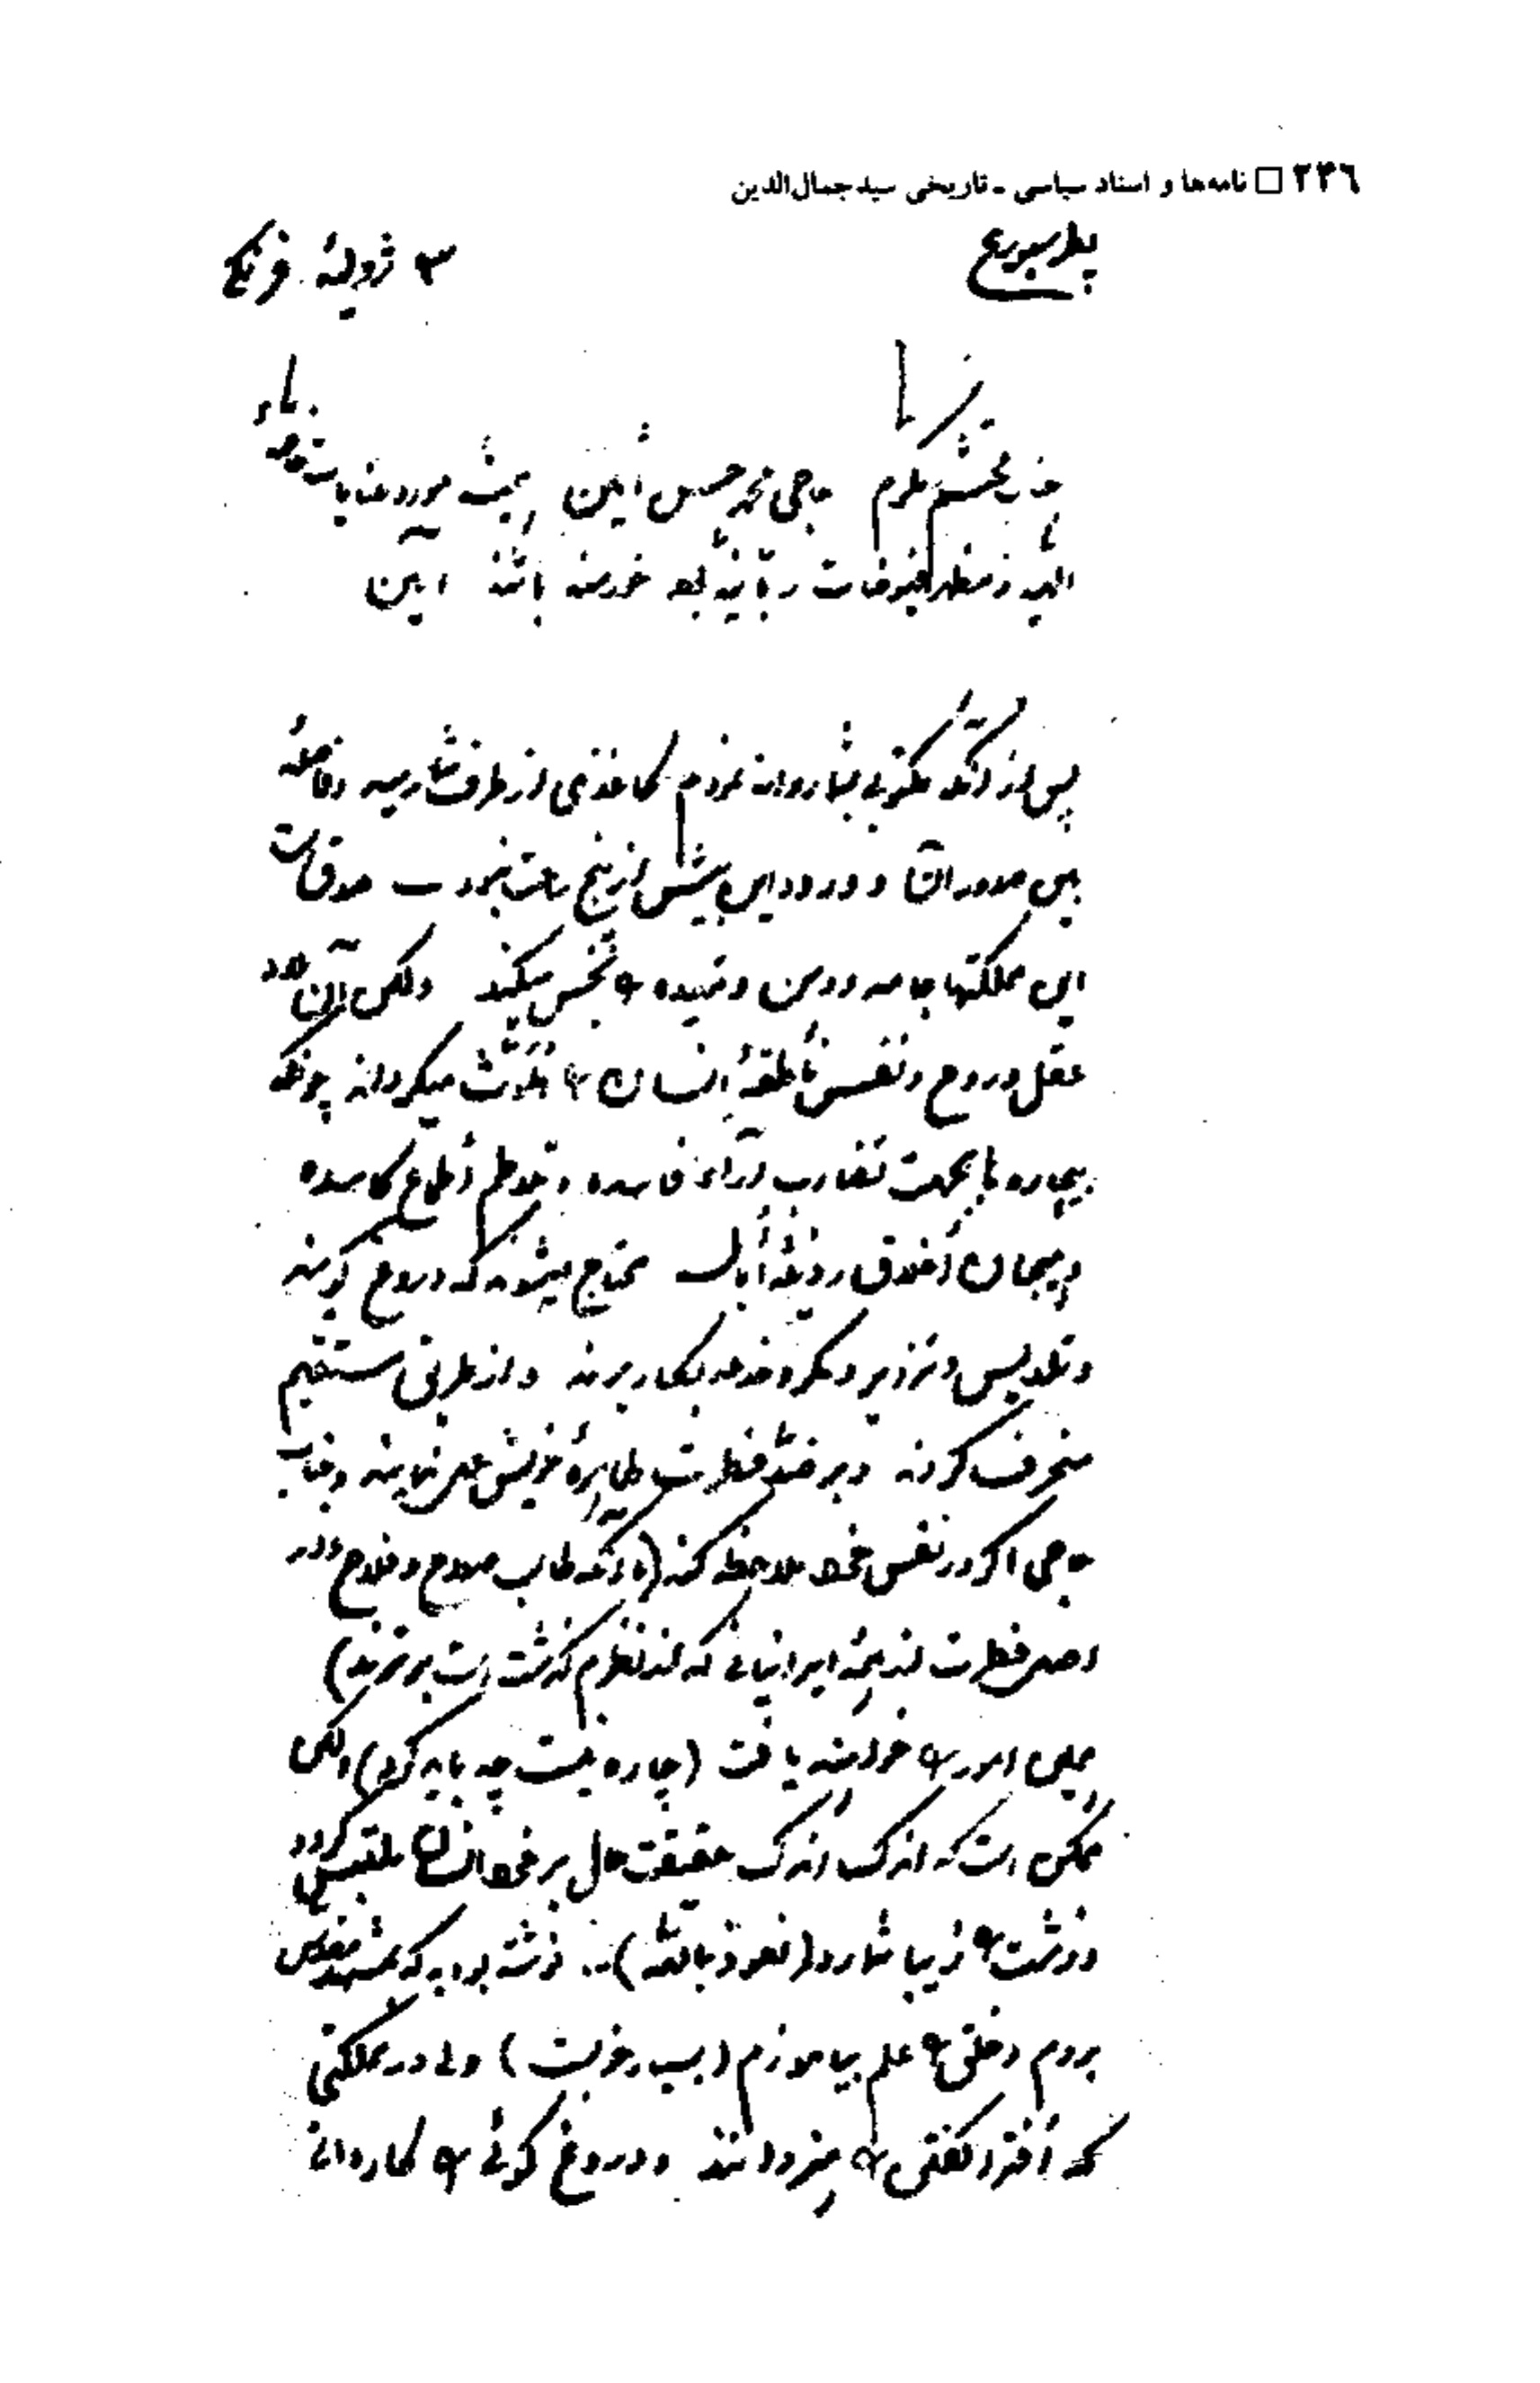 ۲۳۶ □ نامه‌ها و اسناد سیاسی - تاریخی سیدجمال‌الدین
پطرسبورغ
۳ ژولیهٔ فرنگی
جناب محتشم مکرم حاجی محمد حسن امین همیشه مورد عنایات
الهیه و مظهر فیوضات ربانیه بوده خورسند باشند آمین
پس از آنکه مکتوبی بشما روانه نمودم کاغذی از طرف شما رسید و فاصلهٔ
بین صدور آن و ورود این بیش از پنج ساعت نبود صدقات
این مملکتها جامه و دهن و نجس میکند ولکن
عقل و روح و نفس ناطقهٔ انسان را ملوث میگرداند چونکه
بیچاره‌ها بجهت تضارب آراء فاسده و تلاطم اطماع کاسده
و هیجان اخلاق رذیله محتاج میشوند که دروغ گویند
و تدلیس و تزویر و مکر و خدعه بکار برند و از طریق مستقیم
منحرف گردند و بر ضد فطرت طاهرهٔ خویش عمل نمایند و جناب
حاجی اگر در نفس خود ملاحظه کند (با آنکه طالب صلاح و فلاح و در
اصل فطرت از همهٔ ایرانیانی که از نظرم گذشت است برترند)
همین امور را خواهند یافت (چاره نیست چه باید کرد) ولکن
ممکن است که اندک اندک حقیقت حال بر خود انسان ملتبس گردد
و زشت را زیبا شمارد (نعوذ بالله) .. نوشته بودید که بمشهد مقدس
بروم و خلق را علم بیاموزم (بسیار خوبست) ولی در مملکتی
که افترا گفتن را هنر دانند و دروغ گوئی را کاردانی